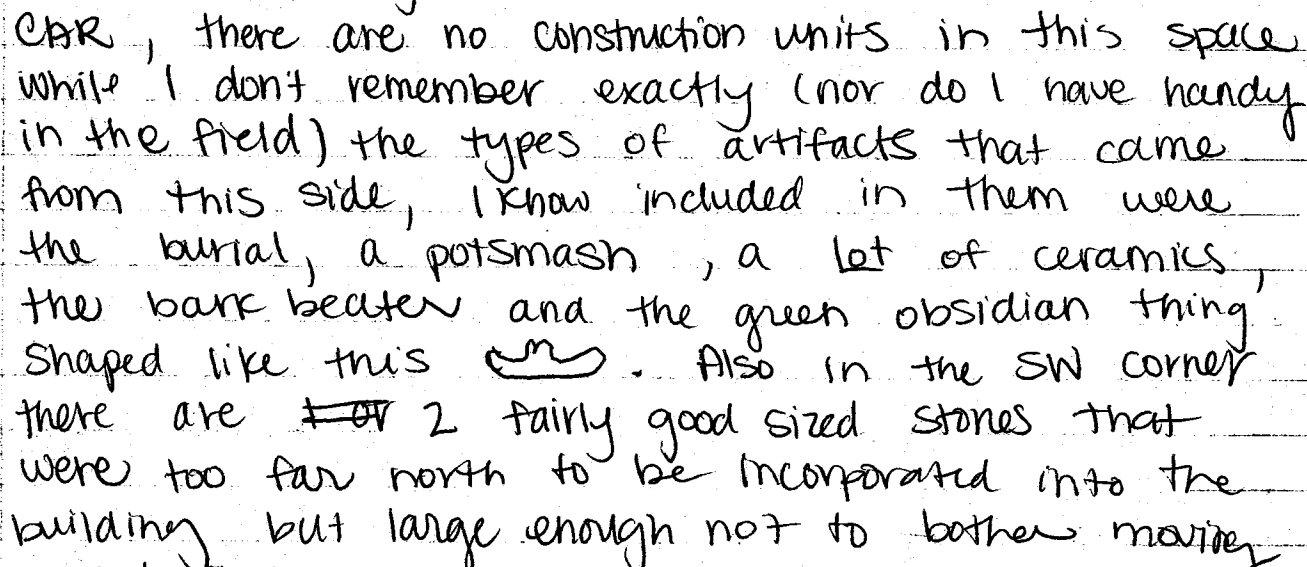 CBR, there are no construction units in this space
while I don't remember exactly (nor do I have handy
in the field) the types of artifacts that came
from this side, I know included in them were
the burial, a potsmash, a lot of ceramics,
the bark beater and the green obsidian thing
shaped like this . Also in the SW corner
there are 1 or 2 fairly good sized stones that
were too far north to be incorporated into the
building but large enough not to bother moving